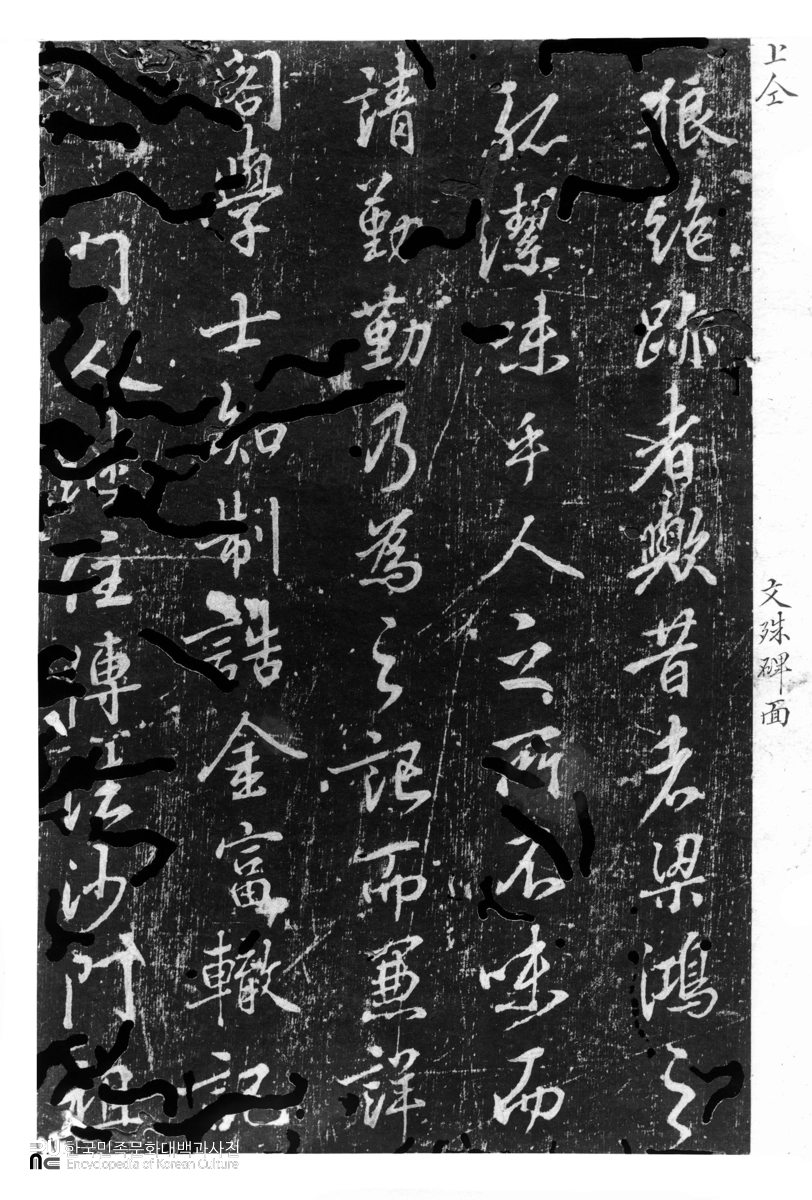 上仝 文殊碑面
狼絶跡者歟昔者梁鴻之
躬潔味乎人之所不味而
請勤勤乃爲之記而兼詳
閣學士知制誥金富轍記
門人住傳法沙門祖
한국민족문화대백과사전
Encyclopedia of Korean Culture